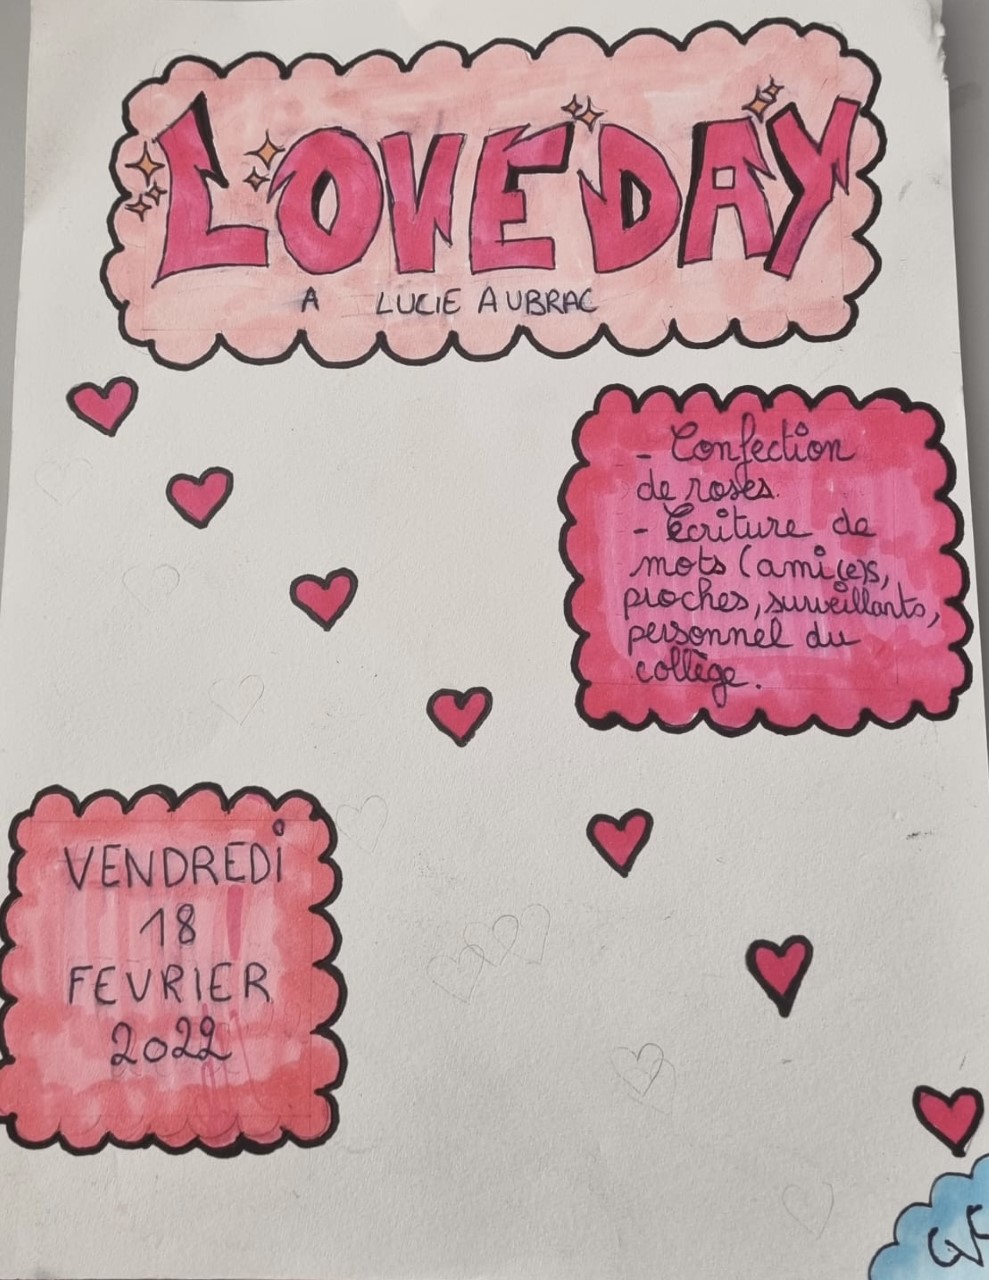 LOVE DAY
A LUCIE AUBRAC
- Confection
de roses.
- Ecriture de
mots (ami(e)s,
proches, surveillants,
personnel du
collège.
VENDREDI
18
FEVRIER
2022